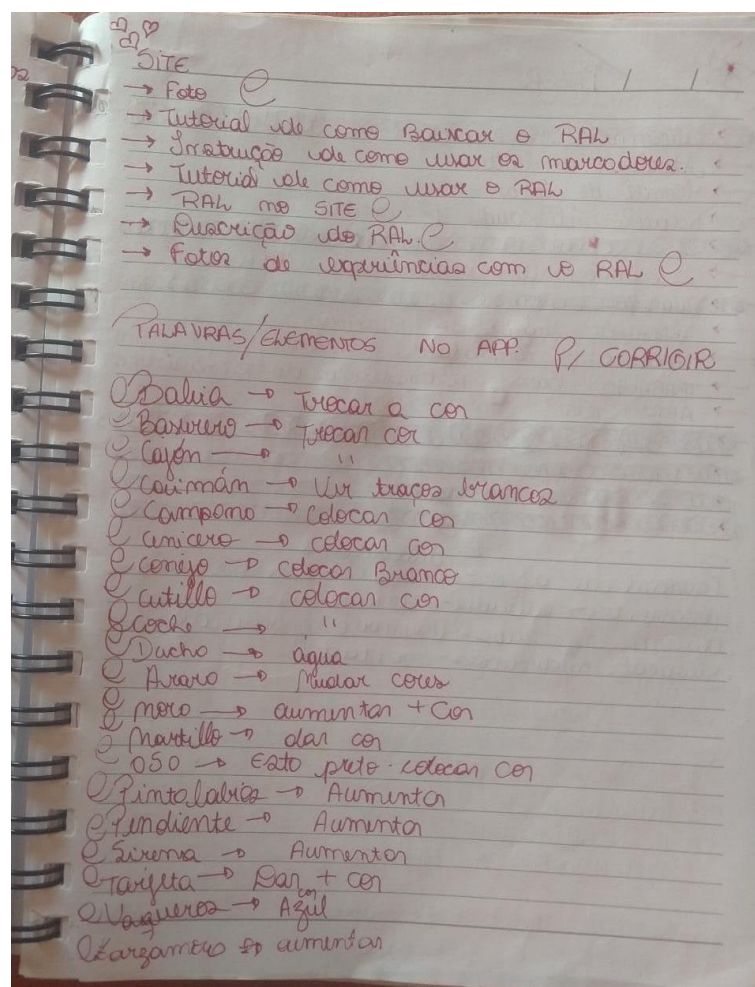 SITE
→ Foto e
→ Tutorial de como Baixar o RAL
→ Instrução de como usar os marcadores.
→ Tutorial de como usar o RAL
→ RAL no SITE e
→ Descrição do RAL. e
→ Fotos de experiências com o RAL e
PALAVRAS/ELEMENTOS NO APP. P/ CORRIGIR
e Bahia → Trocar a cor
e Basurero → Trocar cor
e Cajón → "
e Caimán → Vir traços brancos
e Campono → colocar cor
e cenicero → colocar cor
e conejo → colocar Branco
e cutillo → colocar cor
e coche → "
e Ducho → água
e → Mudar cores
e mono → aumentar + Cor
e Martillo → dar cor
e OSO → Esto preto. colocar cor
e Pintalabios → Aumentar
e Pendiente → Aumentar
e Sirena → Aumentar
e Tarjeta → Dar + cor
e Vaqueros → cor Azul
e → aumentar